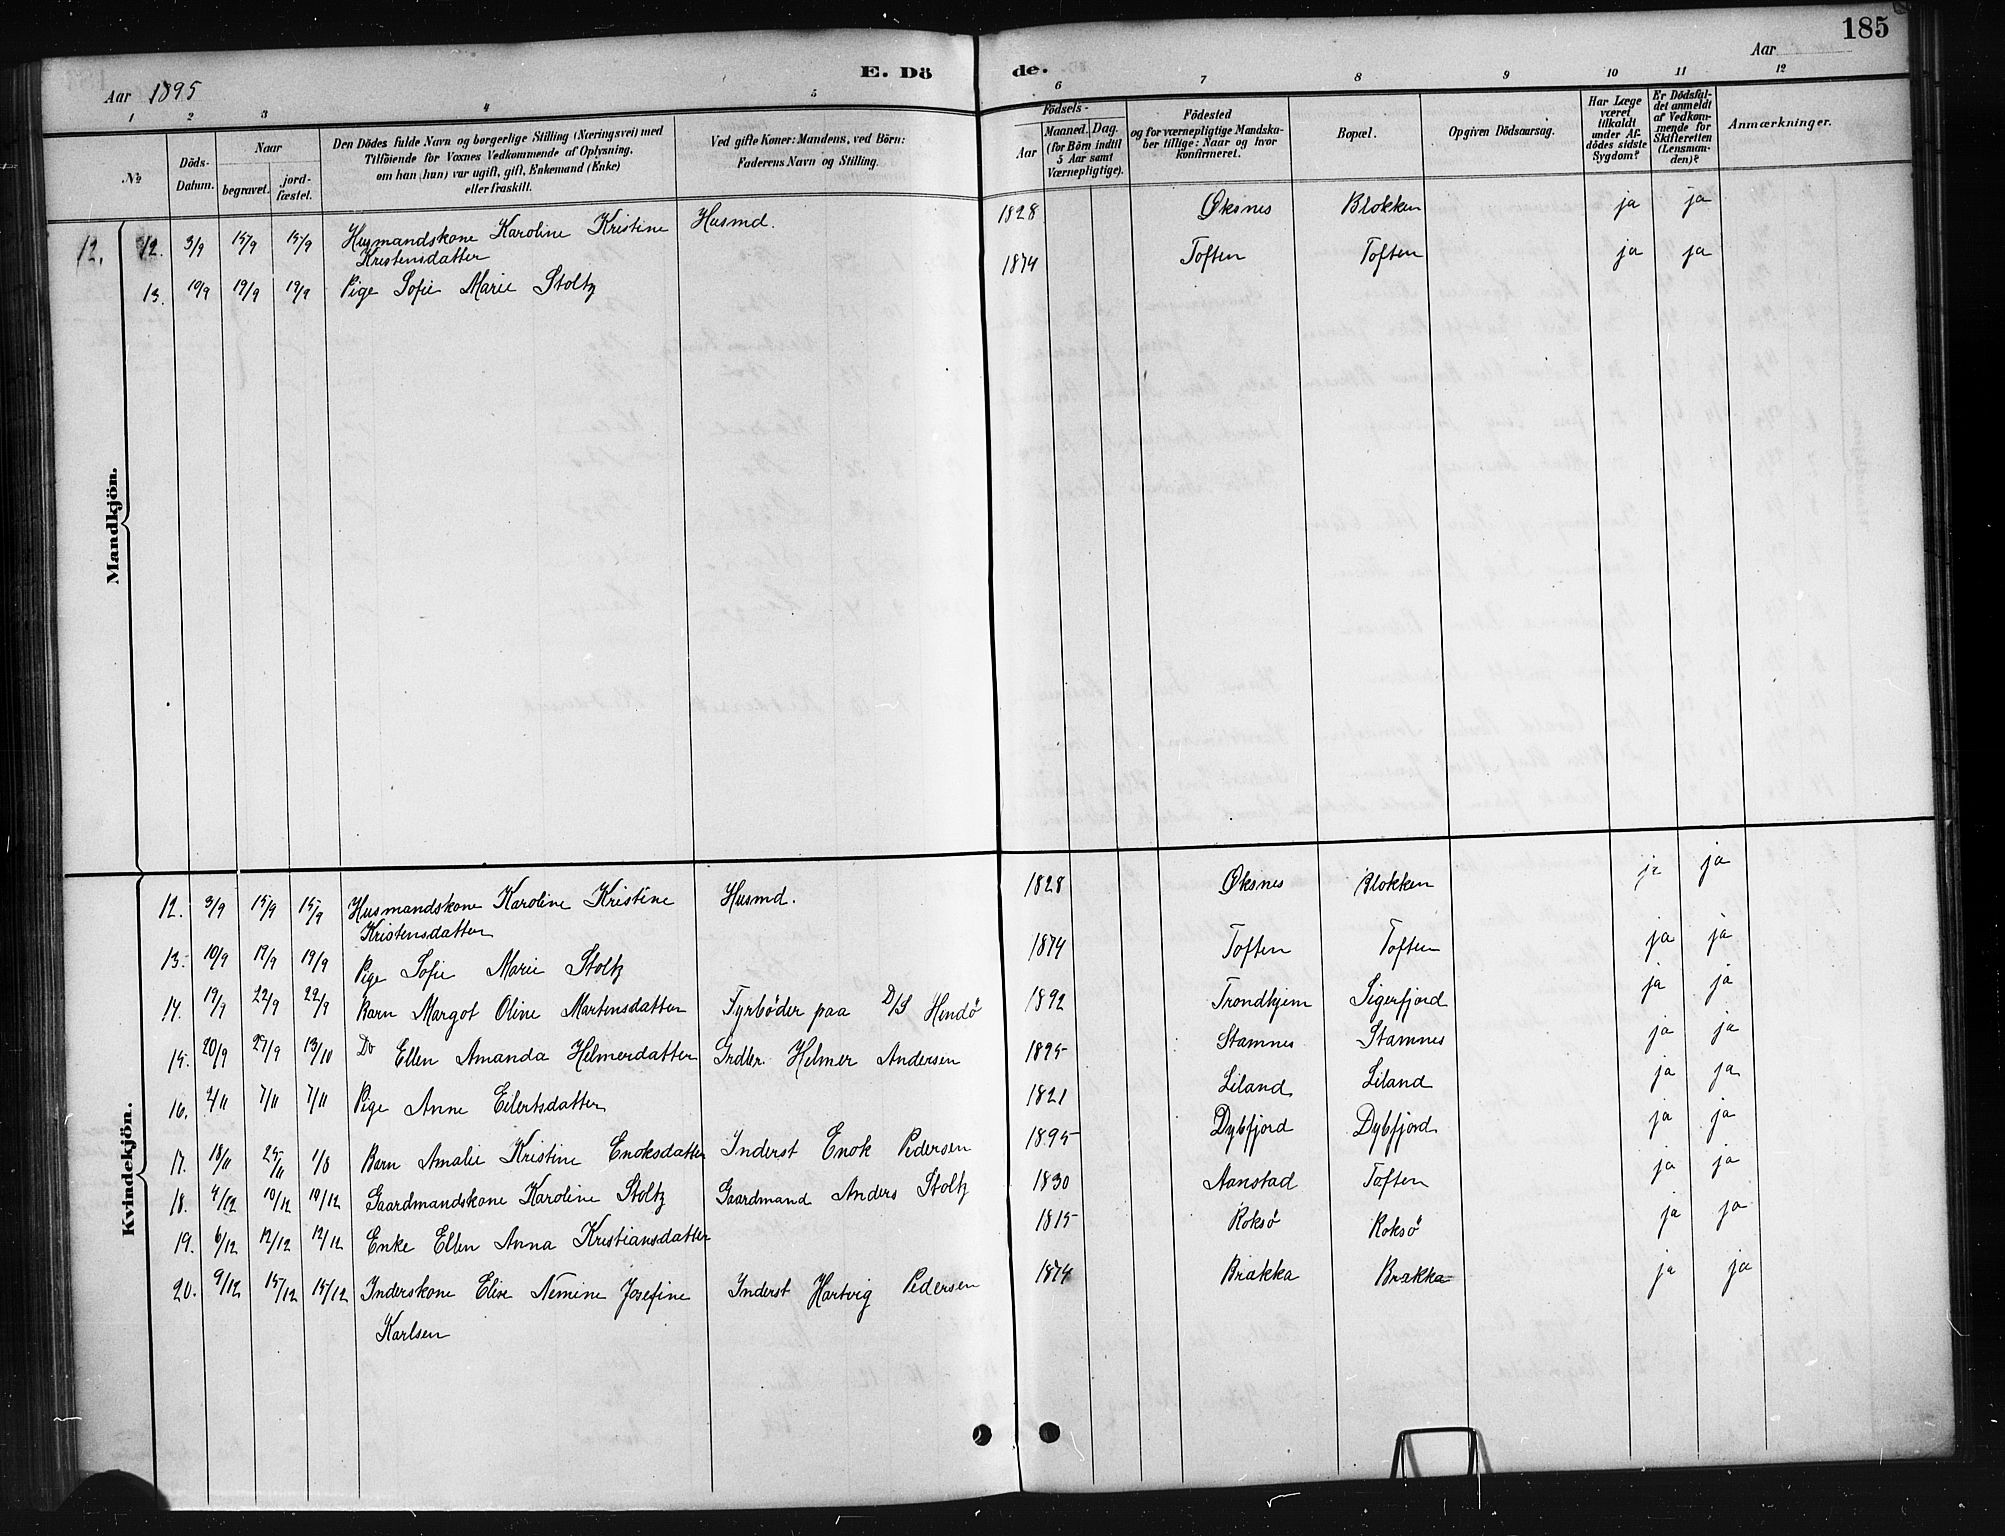 185
Aar 1895
E. Dö de.
Aar
1 2 3 4 5 6 7 8 9 10 11 12
№
Döds-Datum.
Naar
begravet.
jord-fæstet.
Den Dödes fulde Navn og borgerlige Stilling (Næringsvei) med
Tilföiende for Voxnes Vedkommende af Oplysning,
om han (hun) var ugift, gift, Enkemand (Enke)
eller fraskilt.
Ved gifte Koner: Mandens, ved Börn:
Faderens Navn og Stilling.
Födsels-
Aar
Maaned. Dag.
(for Börn indtil
5 Aar samt
Værnepligtige).
Födested
og for værnepligtige Mandska-
ber tillige: Naar og hvor
konfirmeret.
Bopæl.
Opgiven Dödsaarsag.
Har Læge
været
tilkaldt
under Af-
dödes sidste
Sygdom?
Er Dödsfal-
det anmeldt
af Vedkom-
mende for
Skifteretten
(Lensman-
den)?
Anmærkninger.
Mandkjön.
12. 12. 3/9 15/9 15/9 Husmandskone Karoline Kristine Husmd. 1828 Øksnes Blokken ja ja
Kristensdatter
13. 10/9 19/9 19/9 Pige Sofie Marie Stoltz 1874 Toften Toften ja ja
Kvindekjön.
12. 3/9 15/9 15/9 Husmandskone Karoline Kristine Husmd. 1828 Øksnes Blokken ja ja
Kristensdatter
13. 10/9 19/9 19/9 Pige Sofie Marie Stoltz 1874 Toften Toften ja ja
14. 19/9 22/9 22/9 Barn Margot Oline Martensdatter Fyrbøder paa D/S Hindö 1892 Trondhjem Sigerfjord ja ja
15. 20/9 27/9 13/10 Do Ellen Amanda Helmerdatter Indlr. Helmer Andersen 1895 Stamnes Stamnes ja ja
16. 2/11 7/11 7/11 Pige Anne Eilertsdatter 1821 Liland Liland ja ja
17. 18/11 25/11 1/8 Barn Amalie Kristine Enoksdatter Inderst Enok Pedersen 1895 Dybfjord Dybfjord ja ja
18. 4/12 10/12 10/12 Gaardmandskone Karoline Stoltz Gaardmand Anders Stoltz 1830 Aanstad Toften ja ja
19. 6/12 12/12 12/12 Enke Ellen Anna Kristiansdatter 1815 Roksö Roksö ja ja
20. 9/12 15/12 15/12 Inderskone Elise Nemine Josefine Inderst Hartvig Pedersen 1874 Brakka Brakka ja ja
Karlsen